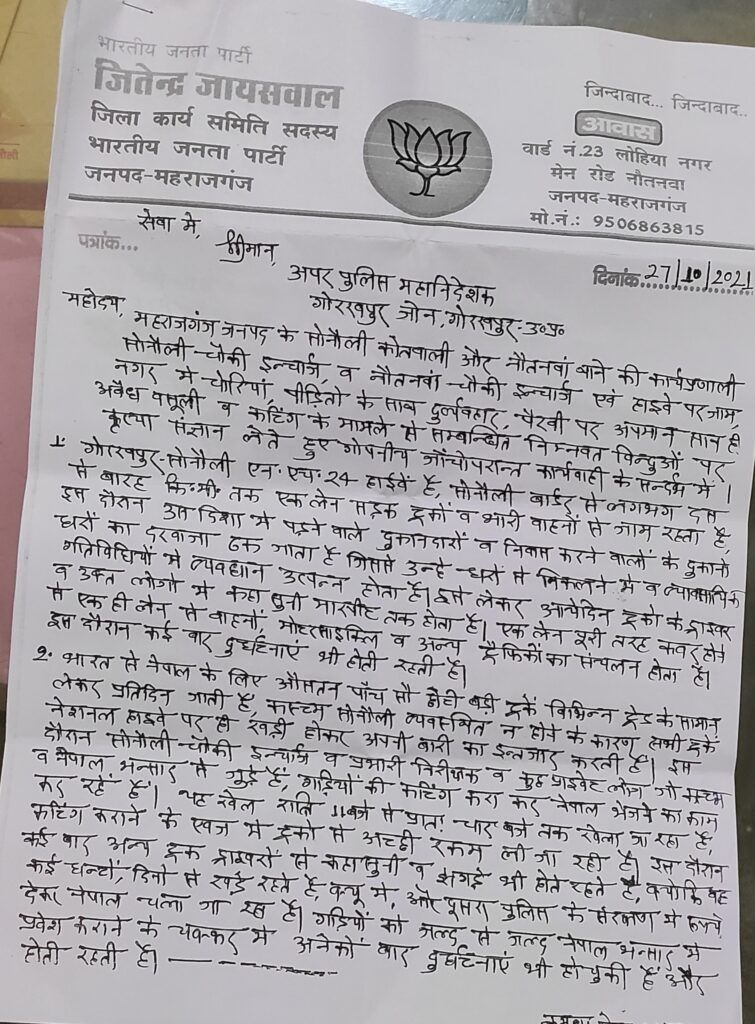 भारतीय जनता पार्टी
जितेन्द्र जायसवाल
जिला कार्य समिति सदस्य
भारतीय जनता पार्टी
जनपद-महराजगंज
जिन्दाबाद... जिन्दाबाद..
आवास
वार्ड नं.23 लोहिया नगर
मेन रोड नौतनवा
जनपद-महराजगंज
मो.नं.: 9506863815
पत्रांक...
दिनांक 27/10/2021
सेवा में,
श्रीमान,
अपर पुलिस महानिदेशक
गोरखपुर जोन, गोरखपुर-उ०प्र०
महोदय,
महराजगंज जनपद के सोनौली कोतवाली और नौतनवां थाने की कार्यप्रणाली
सोनौली-चौकी इन्चार्ज, व नौतनवां-चौकी इन्चार्ज एवं हाइवे पर जाम,
नगर में चोरियां, पीड़ितो के साथ दुर्व्यवहार, पैरवी पर अपमान साथ ही
अवैध वसूली व कटिंग के मामले से सम्बन्धित निम्नवत बिन्दुओं पर
कृपया संज्ञान लेते हुए गोपनीय जाँचोपरान्त कार्यवाही के सन्दर्भ में।
1. गोरखपुर-सोनौली एन. एच. 24 हाईवे है, सोनौली बार्डर से लगभग दस
से बारह कि.मी. तक एक लेन सड़क ट्रकों व भारी वाहनों से जाम रहता है,
इस दौरान उस दिशा में पड़ने वाले दुकानदारों व निवास करने वालों के दुकानो
घरों का दरवाजा ढक जाता है जिससे उन्हे घरों से निकलने में व व्यावसायिक
गतिविधियों में व्यवधान उत्पन्न होता है। इसे लेकर आयेदिन ट्रको के ड्राइवर
व उक्त लोगो में कहा सुनी मारपीट तक होता है। एक लेन पूरी तरह कवर होने
से एक ही लेन से वाहनों, मोटरसाइकिल व अन्य ट्रैफिकों का संचलन होता है।
इस दौरान कई बार दुर्घटनाएं भी होती रहती है।
2. भारत से नेपाल के लिए औसतन पाँच सौ छोटी बड़ी ट्रकें विभिन्न ट्रेड के सामान
लेकर प्रतिदिन जाती है, कास्टम सोनौली व्यवस्थित न होने के कारण सभी ट्रकें
नेशनल हाइवे पर ही खड़ी होकर अपनी बारी का इन्तजार करती है। इस
दौरान सोनौली-चौकी इन्चार्ज व प्रभारी निरीक्षक व कुछ प्राइवेट लोग जो कस्टम
व नेपाल भन्सार से जुड़े हैं, गाड़ियों की कटिंग करा कर नेपाल भेजने का काम
कर रहें हैं। यह खेल रात्रि 11 बजे से प्रातः चार बजे तक खेला जा रहा है,
कटिंग कराने के एवज में ट्रको से अच्छी रकम ली जा रही है। इस दौरान
कई बार अन्य ट्रक ड्राइवरों से कहासुनी व झगड़े भी होते रहते है, क्योंकि वह
कई घन्टों, दिनो से खड़े रहते है, क्यू में, और दूसरा पुलिस के संरक्षण में रूपये
देकर नेपाल चला जा रहा है। गाड़ियों को जल्द से जल्द नेपाल भन्सार में
प्रवेश कराने के चक्कर में अनेकों बार दुर्घटनाएं भी हो चुकी हैं और
होती रहती है।